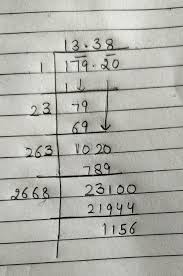 13.38
1 179.20
1
23 79
69
263 1020
789
2668 23100
21944
1156